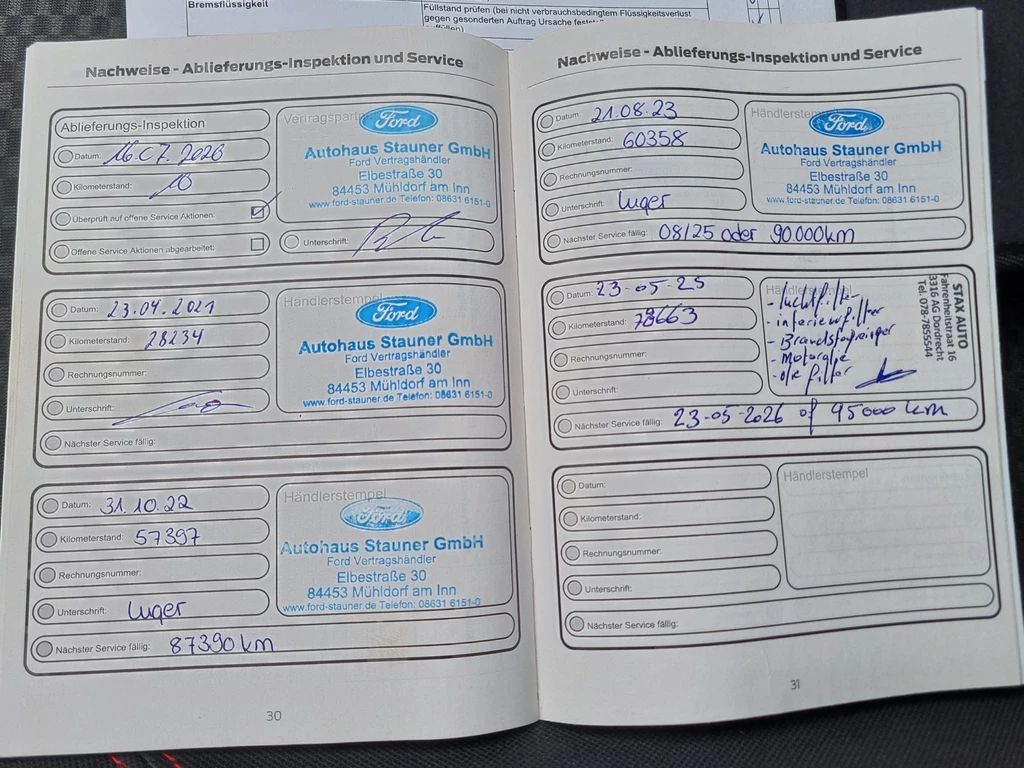 Bremsflüssigkeit
Füllstand prüfen (bei nicht verbrauchsbedingtem Flüssigkeitsverlust
gegen gesonderten Auftrag Ursache
Nachweise - Ablieferungs-Inspektion und Service
Ablieferungs-Inspektion
Datum: 16.07.2020
Kilometerstand: 10
Überprüft auf offene Service Aktionen:
Offene Service Aktionen abgearbeitet:
Ford
Autohaus Stauner GmbH
Ford Vertragshändler
Elbestraße 30
84453 Mühldorf am Inn
www.ford-stauner.de Telefon: 08631 6151-0
Unterschrift:
Datum: 23.04.2021
Kilometerstand: 28234
Rechnungsnummer:
Unterschrift:
Nächster Service fällig:
Händlerstempel
Ford
Autohaus Stauner GmbH
Ford Vertragshändler
Elbestraße 30
84453 Mühldorf am Inn
www.ford-stauner.de Telefon: 08631 6151-0
Datum: 31.10.22
Kilometerstand: 57397
Rechnungsnummer:
Unterschrift: Luger
Nächster Service fällig: 87390 km
Händlerstempel
Ford
Autohaus Stauner GmbH
Ford Vertragshändler
Elbestraße 30
84453 Mühldorf am Inn
www.ford-stauner.de Telefon: 08631 6151-0
30
Nachweise - Ablieferungs-Inspektion und Service
Datum: 21.08.23
Kilometerstand: 60358
Rechnungsnummer:
Unterschrift: Luger
Nächster Service fällig: 08/25 oder 90.000km
Ford
Autohaus Stauner GmbH
Ford Vertragshändler
Elbestraße 30
84453 Mühldorf am Inn
www.ford-stauner.de Telefon: 08631 6151-0
Datum: 23-05-25
Kilometerstand: 78663
Rechnungsnummer:
Unterschrift:
Nächster Service fällig: 23-05-2026 of 95000 km
- luchtfilter
- interieurfilter
- Motorolie
- olie filter
STAX AUTO
Fahrenheitstraat 16
3316 AG Dordrecht
Tel. 078-7855544
Datum:
Kilometerstand:
Rechnungsnummer:
Unterschrift:
Nächster Service fällig:
Händlerstempel
31